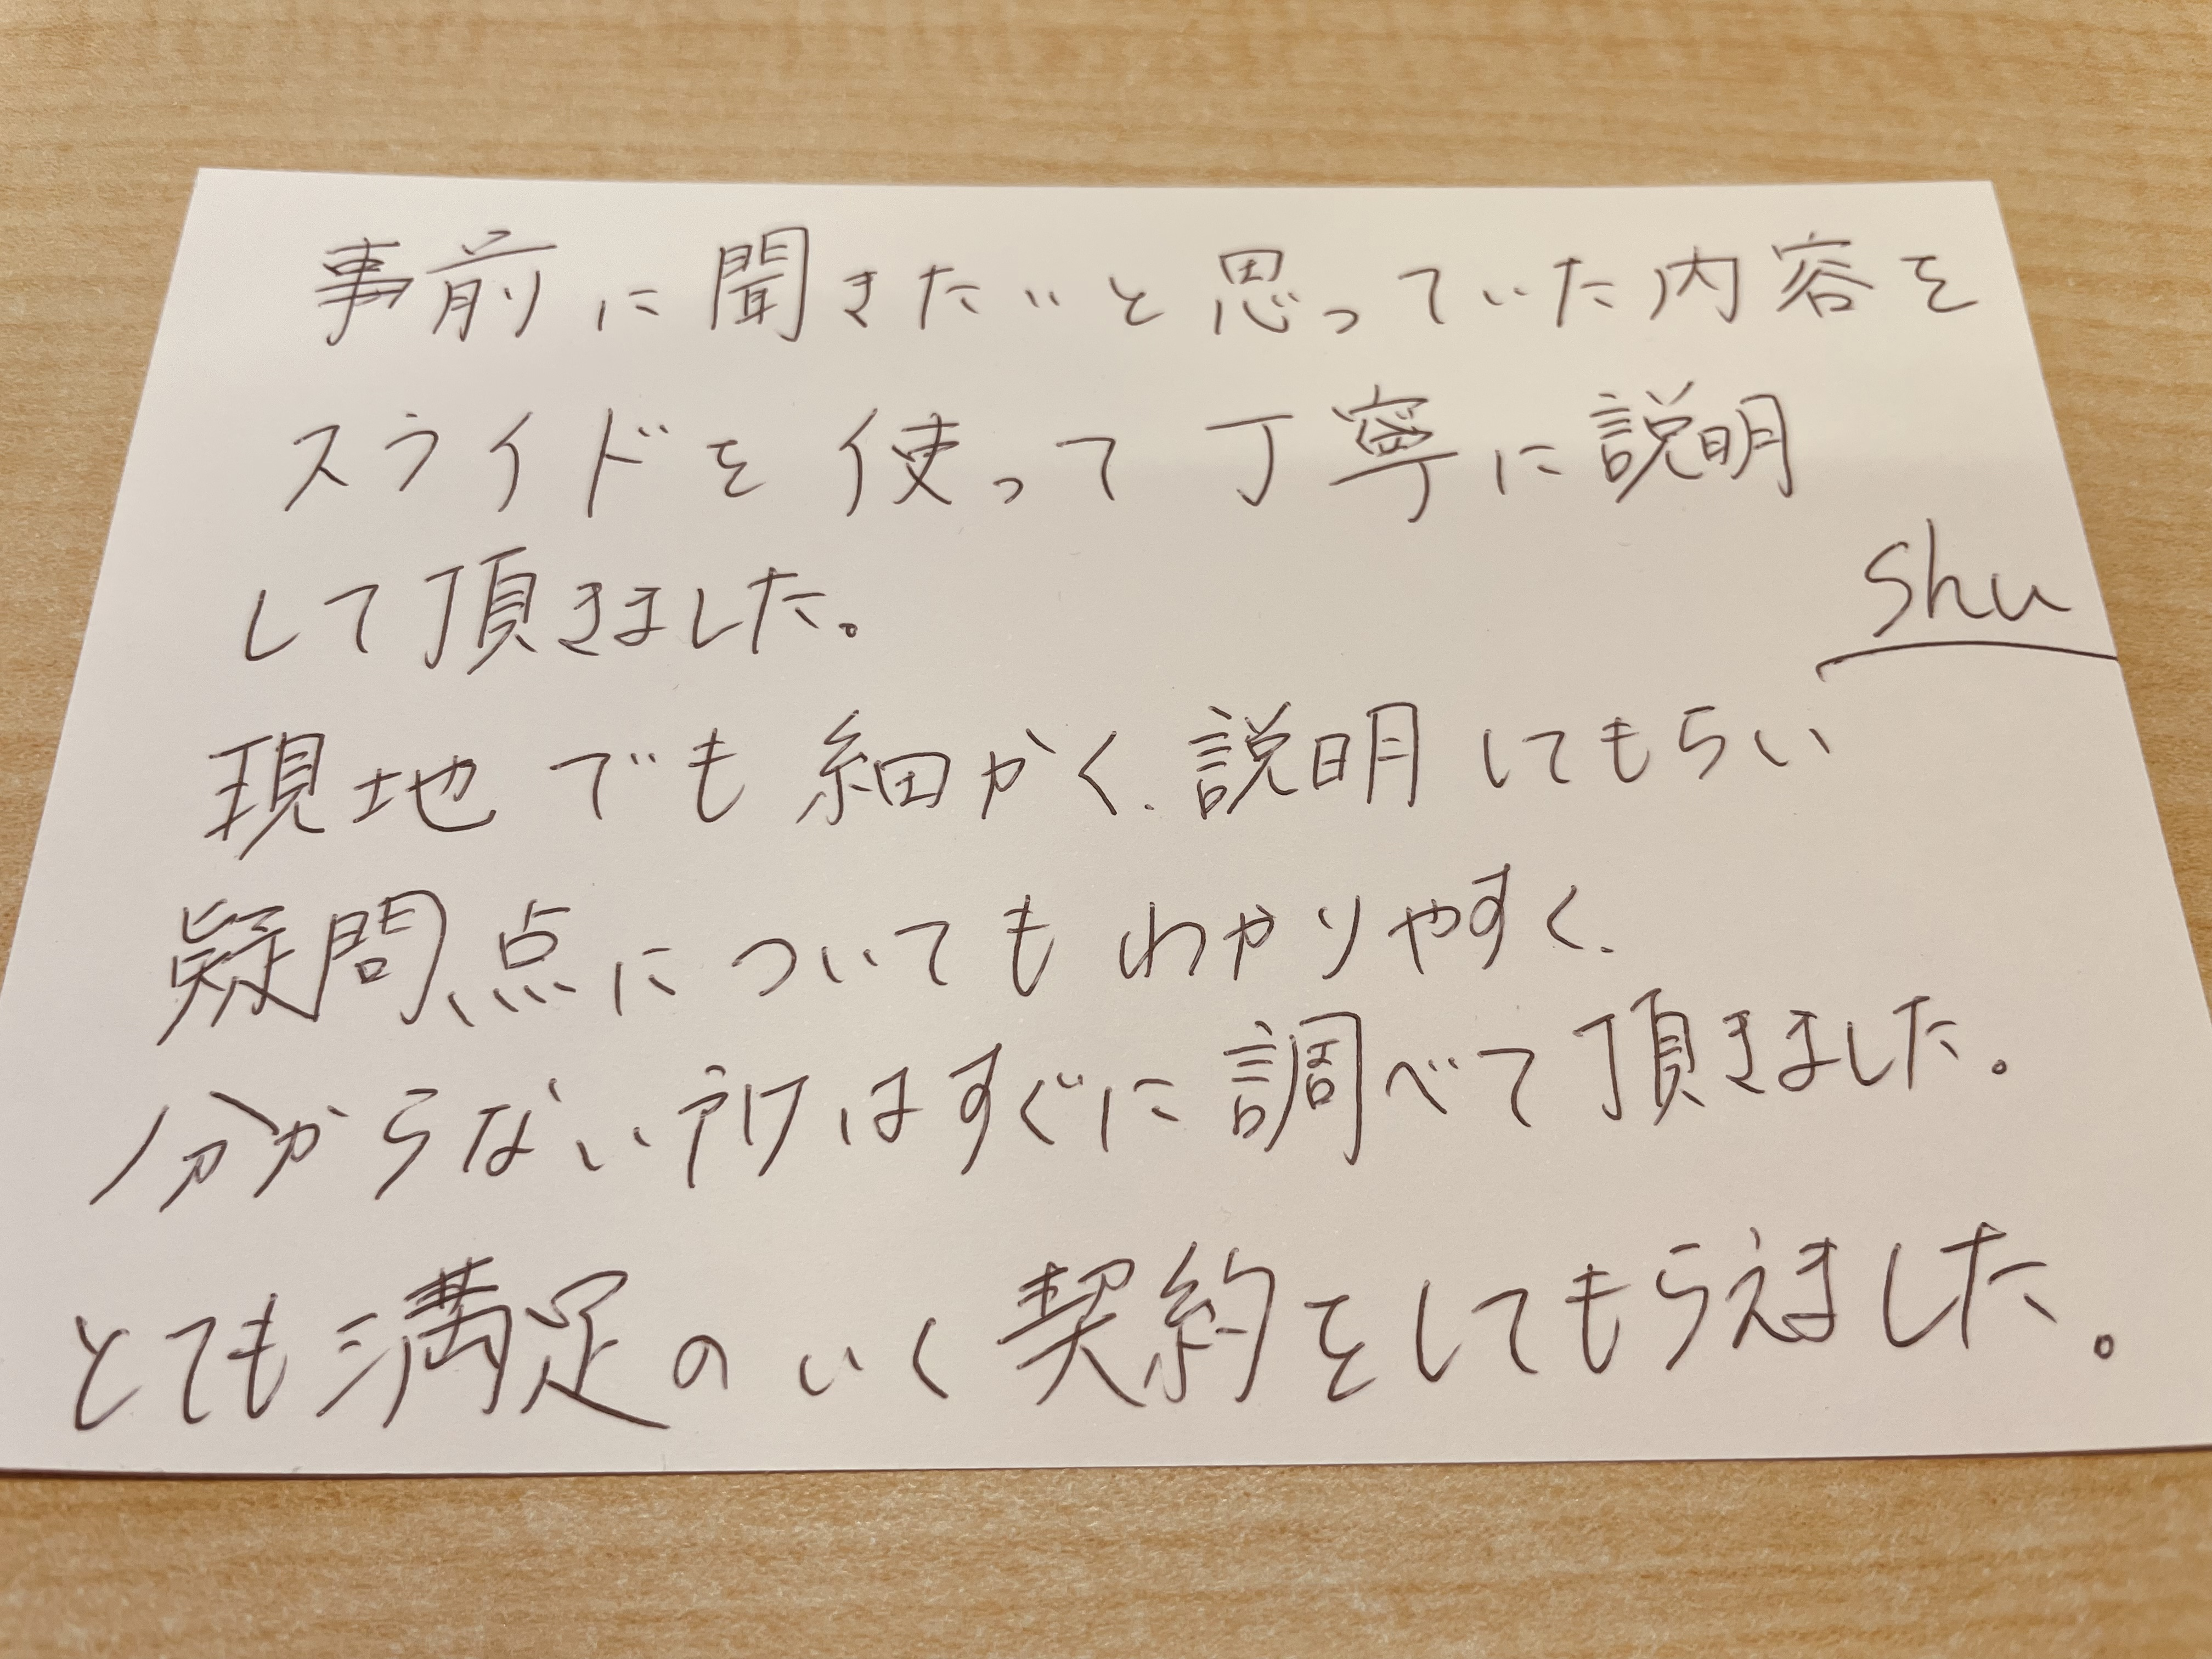 事前に聞きたいと思っていた内容を
スライドを使って丁寧に説明
して頂きました。
shu
現地でも細かく、説明してもらい
疑問点についてもわかりやすく、
分からない所はすぐに調べて頂きました。
とても満足のいく契約をしてもらえました。